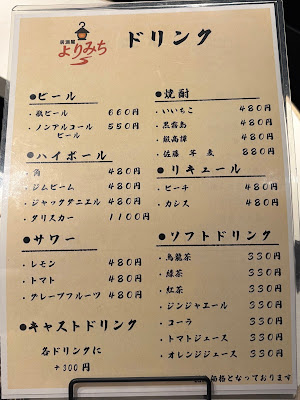 居酒屋
よりみち
ドリンク
●ビール
・瓶ビール 660円
・ノンアルコール 550円
ビール
●ハイボール
・角 480円
・ジムビーム 480円
・ジャックダニエル 480円
・タリスカー 1100円
●サワー
・レモン 480円
・トマト 480円
・グレープフルーツ 480円
●キャストドリンク
各ドリンクに
+300円
●焼酎
・いいちこ 480円
・黒霧島 480円
・銀高譚 480円
・佐藤 麦 880円
●リキュール
・ピーチ 480円
・カシス 480円
●ソフトドリンク
・烏龍茶 330円
・緑茶 330円
・紅茶 330円
・ジンジャエール 330円
・コーラ 330円
・トマトジュース 330円
・オレンジジュース 330円
価格となっております